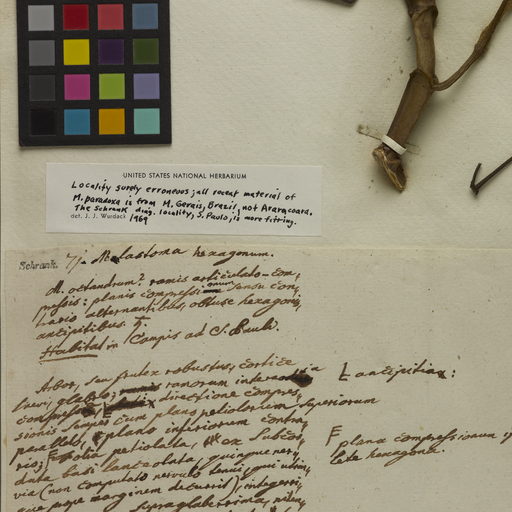 UNITED STATES NATIONAL HERBARIUM
Locality surely erroneous; all recent material of
M. paradoxa is from M. Gerais, Brazil, not Araracoara.
The Schrank diag. locality, S. Paulo, is more fitting.
det. J. J. Wurdack 1969
Schrank.
71. Melastoma hexagonum.
M. octandrum? ramis articulato-com,
pressis: planis compressionum sensu con,
trario alternantibus, obtuse hexagonis,
ancipitibus. ♄.
Habitat in Campis ad S. Pauli.
Arbor, seu frutex robustus, cortice
laevi, glabro; ramorum internodia
compressa, directione compres,
sionis semper cum plano petiolorum superiorum
parallelo, plano inferiorum contra,
rio; Folia petiolata, ex subcor,
data basi lanceolata, quinquener,
via (non computato nervulo tenui, qui utrin,
que prope marginem decurrit), integerri,
supraglaberrima, niten,
Ⱶ ancipitia:
F plana compressionum
late hexagona.